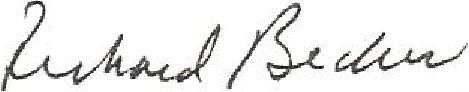 Richard Becker